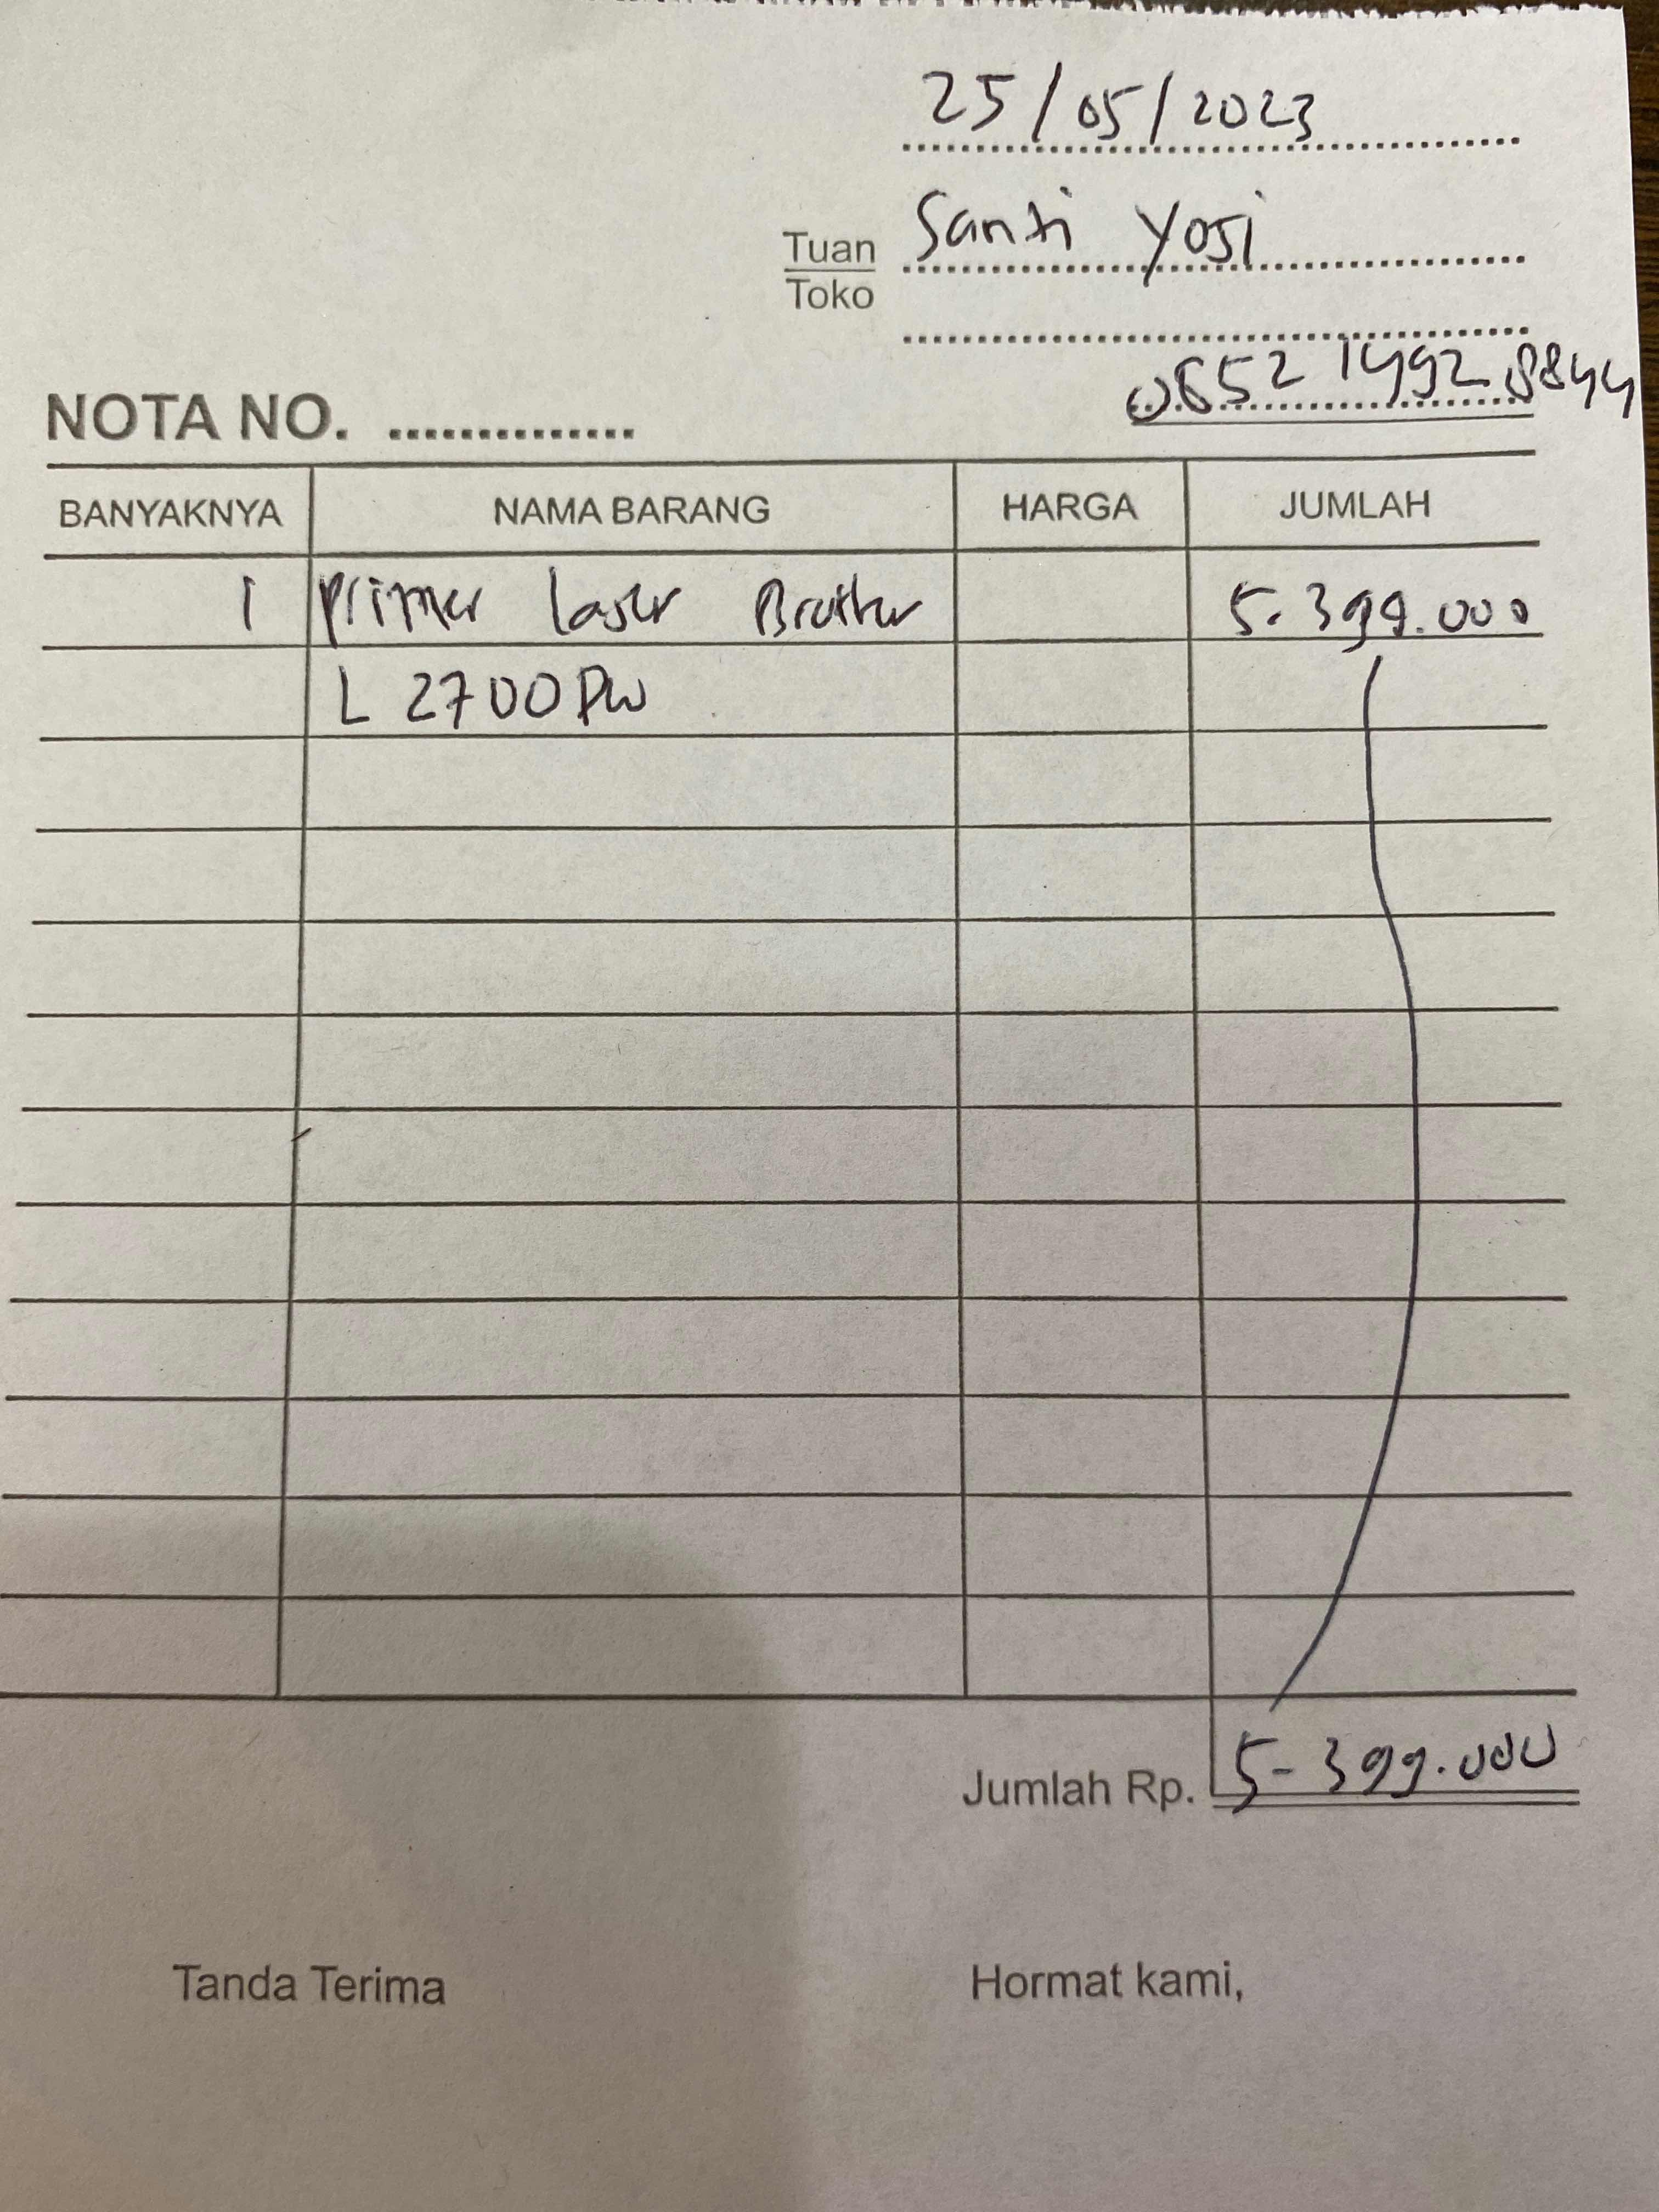 25/05/2023
Tuan Santi Yosi
Toko
0852 1492 8844
NOTA NO. ..............
BANYAKNYA NAMA BARANG HARGA JUMLAH
1 Printer laser Brother 5.399.000
L 2700DW
Jumlah Rp. 5-399.000
Tanda Terima Hormat kami,